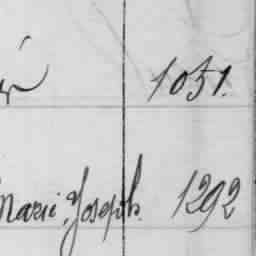 1051.
Marie, Joseph. 1292